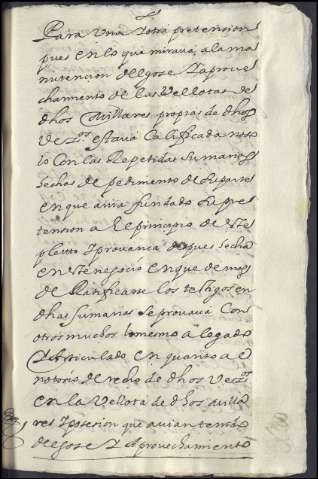 Para Una Y otra pretension
pues en lo que mirava, a la ma
nutencion del gose Y aprove
chamiento de las Vellotas de
dhos Quillares propias de dhos
Vez.os estava Calificada no so
lo con las Repetidas sumarias
fechas de pedimento de su parte
en que avia fundado su pre
tension a el principio de este
pleito Y provança despues fecha
en este negocio en que de mas
de Ratificarse los testigos en
dhas sumarias se provava Con
otros muchos lo mesmo alegado
Y Articulado en quanto a el
notorio derecho de dhos Vez.os
en la Vellota de dhos quilla
res Y posesion que avian tenido
del gose Y Aprovechamiento